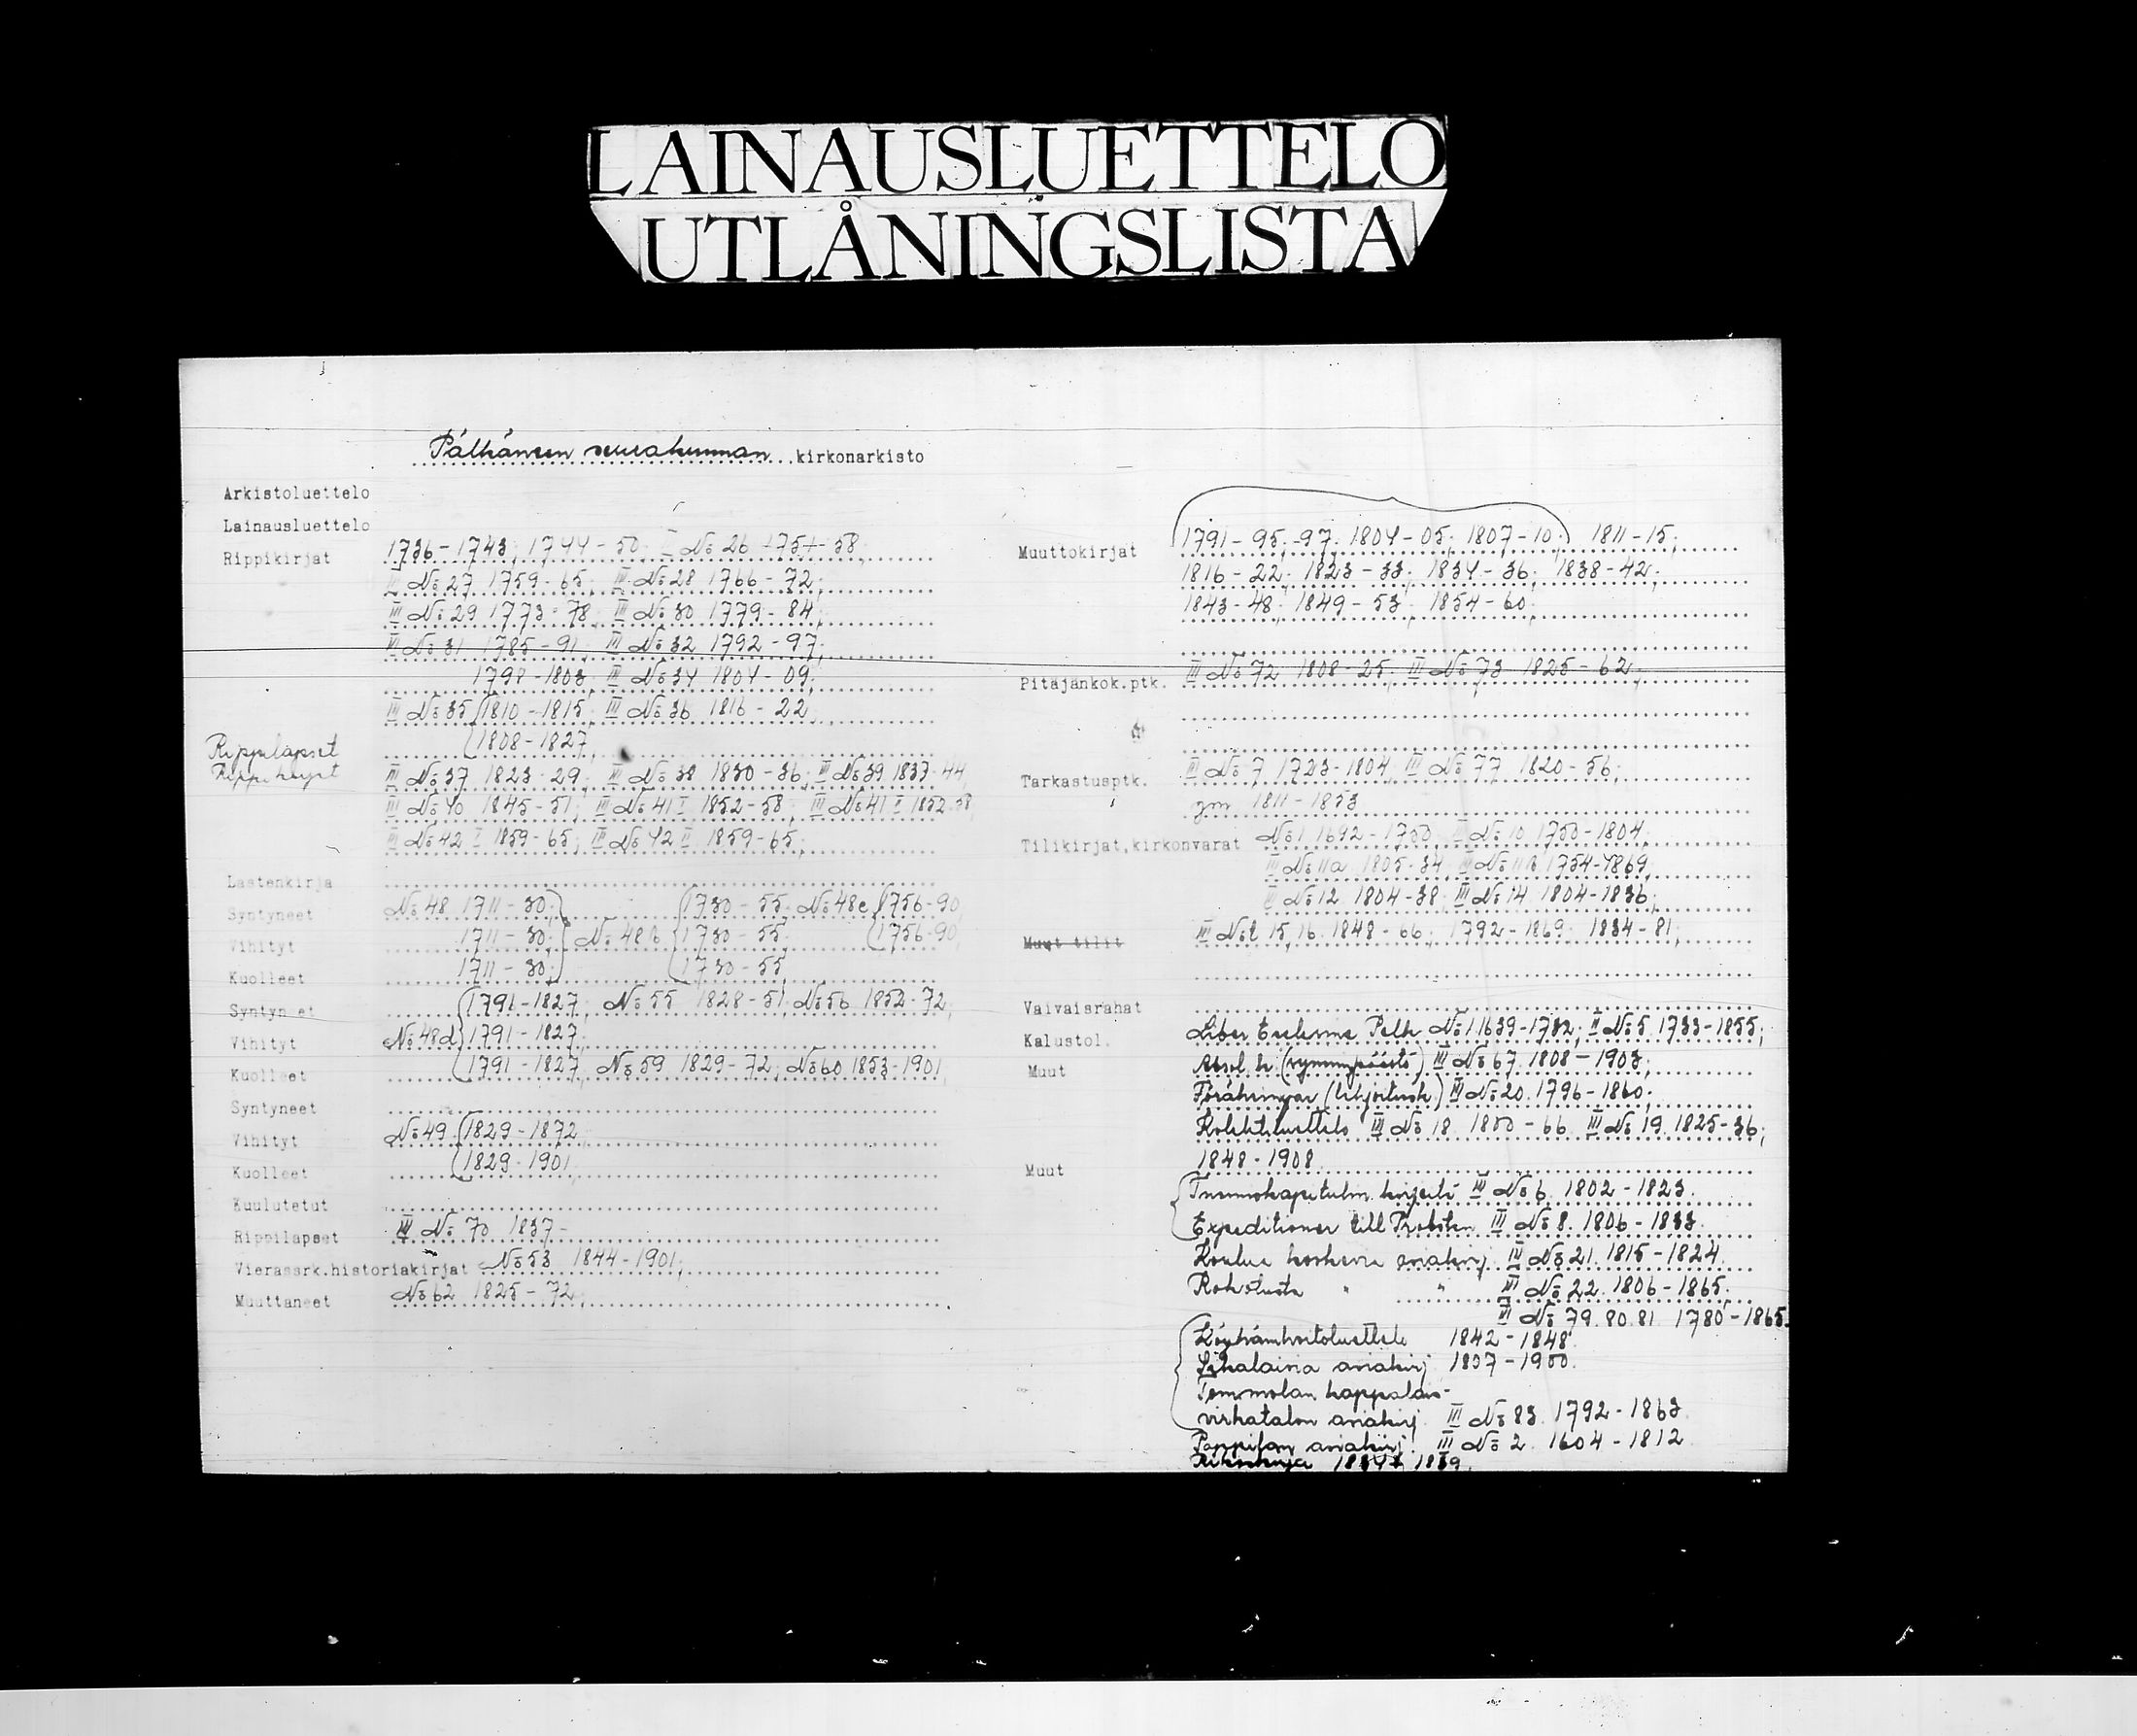 LAINAUSLUETTELO
UTLÅNINGSLISTA
Pälkäneen seurakunnan kirkonarkisto
Arkistoluettelo
Lainausluettelo
Rippikirjat 1736-1743; 1744-50; No 26 1751-58;
No 27 1759-65; III No 28 1766-72;
III No 29 1773-78; III No 30 1779-84;
III No 31 1785-91; III No 32 1792-97;
1798-1803; III No 34 1804-09;
III No 35 1810-1815; III No 36 1816-22
Rippilapset 1808-1827;
III No 37 1823-29; III No 38 1830-36; III No 39 1837-44
III No 40 1845-51; III No 41 I 1852-58; III No 41 I 1852-58;
III No 42 I 1859-65; III No 42 II 1859-65;
Lastenkirja
Syntyneet No 48 1711-30; 1730-55; No 48c 1756-90;
Vihityt 1711-30; No 48b 1730-55; 1756-90;
Kuolleet 1711-30; 1730-55;
Syntyneet 1791-1827; No 55 1828-51; No 56 1852-72;
Vihityt No 48d 1791-1827;
Kuolleet 1791-1827; No 59 1829-72; No 60 1853-1901
Syntyneet
Vihityt No 49 1829-1872
Kuolleet 1829-1901
Kuulutetut
Rippilapset No 70 1837-
Vierassrk.historiakirjat No 53 1844-1901;
Muuttaneet No 62 1825-72;
Muuttokirjat 1791-95; -97; 1804-05; 1807-10; 1811-15;
1816-22; 1823-33; 1834-36; 1838-42;
1843-48; 1849-53; 1854-60;
Pitäjänkok.ptk. III No 72 1808-25; III No 73 1825-62;
Tarkastusptk. III No 7 1723-1804; III No 77 1820-56;
ym 1811-1853
Tilikirjat,kirkonvarat No 1 1692-1750; No 10 1750-1804;
III No 11a 1805-34; III No 11b 1754-1869;
No 12 1804-38; III No 14 1804-1836;
Muut tilit III 15, 16 1848-66; 1792-1869; 1834-81;
Vaivaisrahat
Kalustol. Liber Pelk No 1 1639-1732; II No 5 1733-1855;
Muut Absol. k. (synninpäästö) III No 67 1808-1903;
(lahjoitusk.) III No 20 1796-1860;
III No 18 1800-66 III No 19 1825-36;
1848-1908
Muut
Tuomiokapitulin kirjeitä III No 6 1802-1823
Expeditioner till Probsten III No 8 1806-1833
Koulua koskevia asiakirj III No 21 1815-1824
Rokotusta " " III No 22 1806-1865
III No 79.80.81 1780-1865
Köyhäinhoitoluettelo 1842-1848
Sekalaisia asiakirj 1807-1900
Tommolan kappalais-
virkatalon asiakirj III No 83 1792-1863
Pappilan asiakirj. III No 2 1604-1812